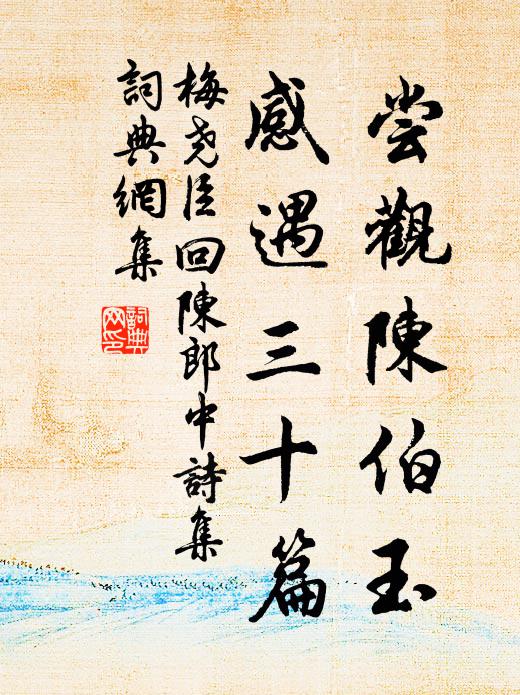 尝觀陳伯玉
感遇三十篇
梅尧臣回陳郎中詩集
詞典網集
詞典网印